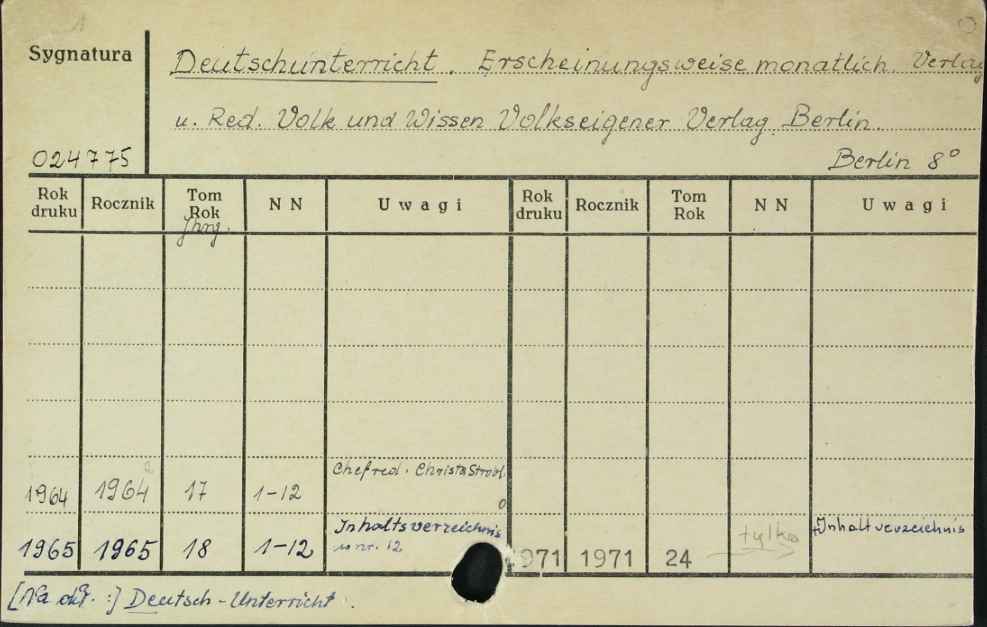 Sygnatura
Deutschunterricht. Erscheinungsweise monatlich. Verlag
u. Red. Volk und Wissen Volkseigener Verlag Berlin.
024775
Berlin 8°
Rok druku Rocznik Tom Rok NN Uwagi Rok druku Rocznik Tom Rok NN Uwagi
Jhrg.
Chefred. Christa Strobl.
1964 1964 17 1-12
Inhaltsverzeichnis tylko +Inhaltverzeichnis
w nr. 12
1965 1965 18 1-12 1971 1971 24
[Na okł. :] Deutsch-Unterricht.